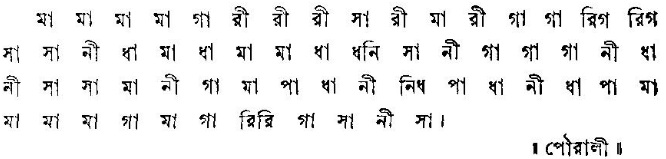 মা মা মা মা গা রী রী রী সা রী মা রী গা গা রিগ রিগ
সা সা নী ধা মা ধা মা মা ধা ধনি সা নী গা গা গা নী ধা
নী সা সা মা নী গা মা পা ধা নী নিধ পা ধা নী ধা পা মা
মা মা মা গা মা গা রিরি গা সা নী সা।
॥ পৌরালী ॥